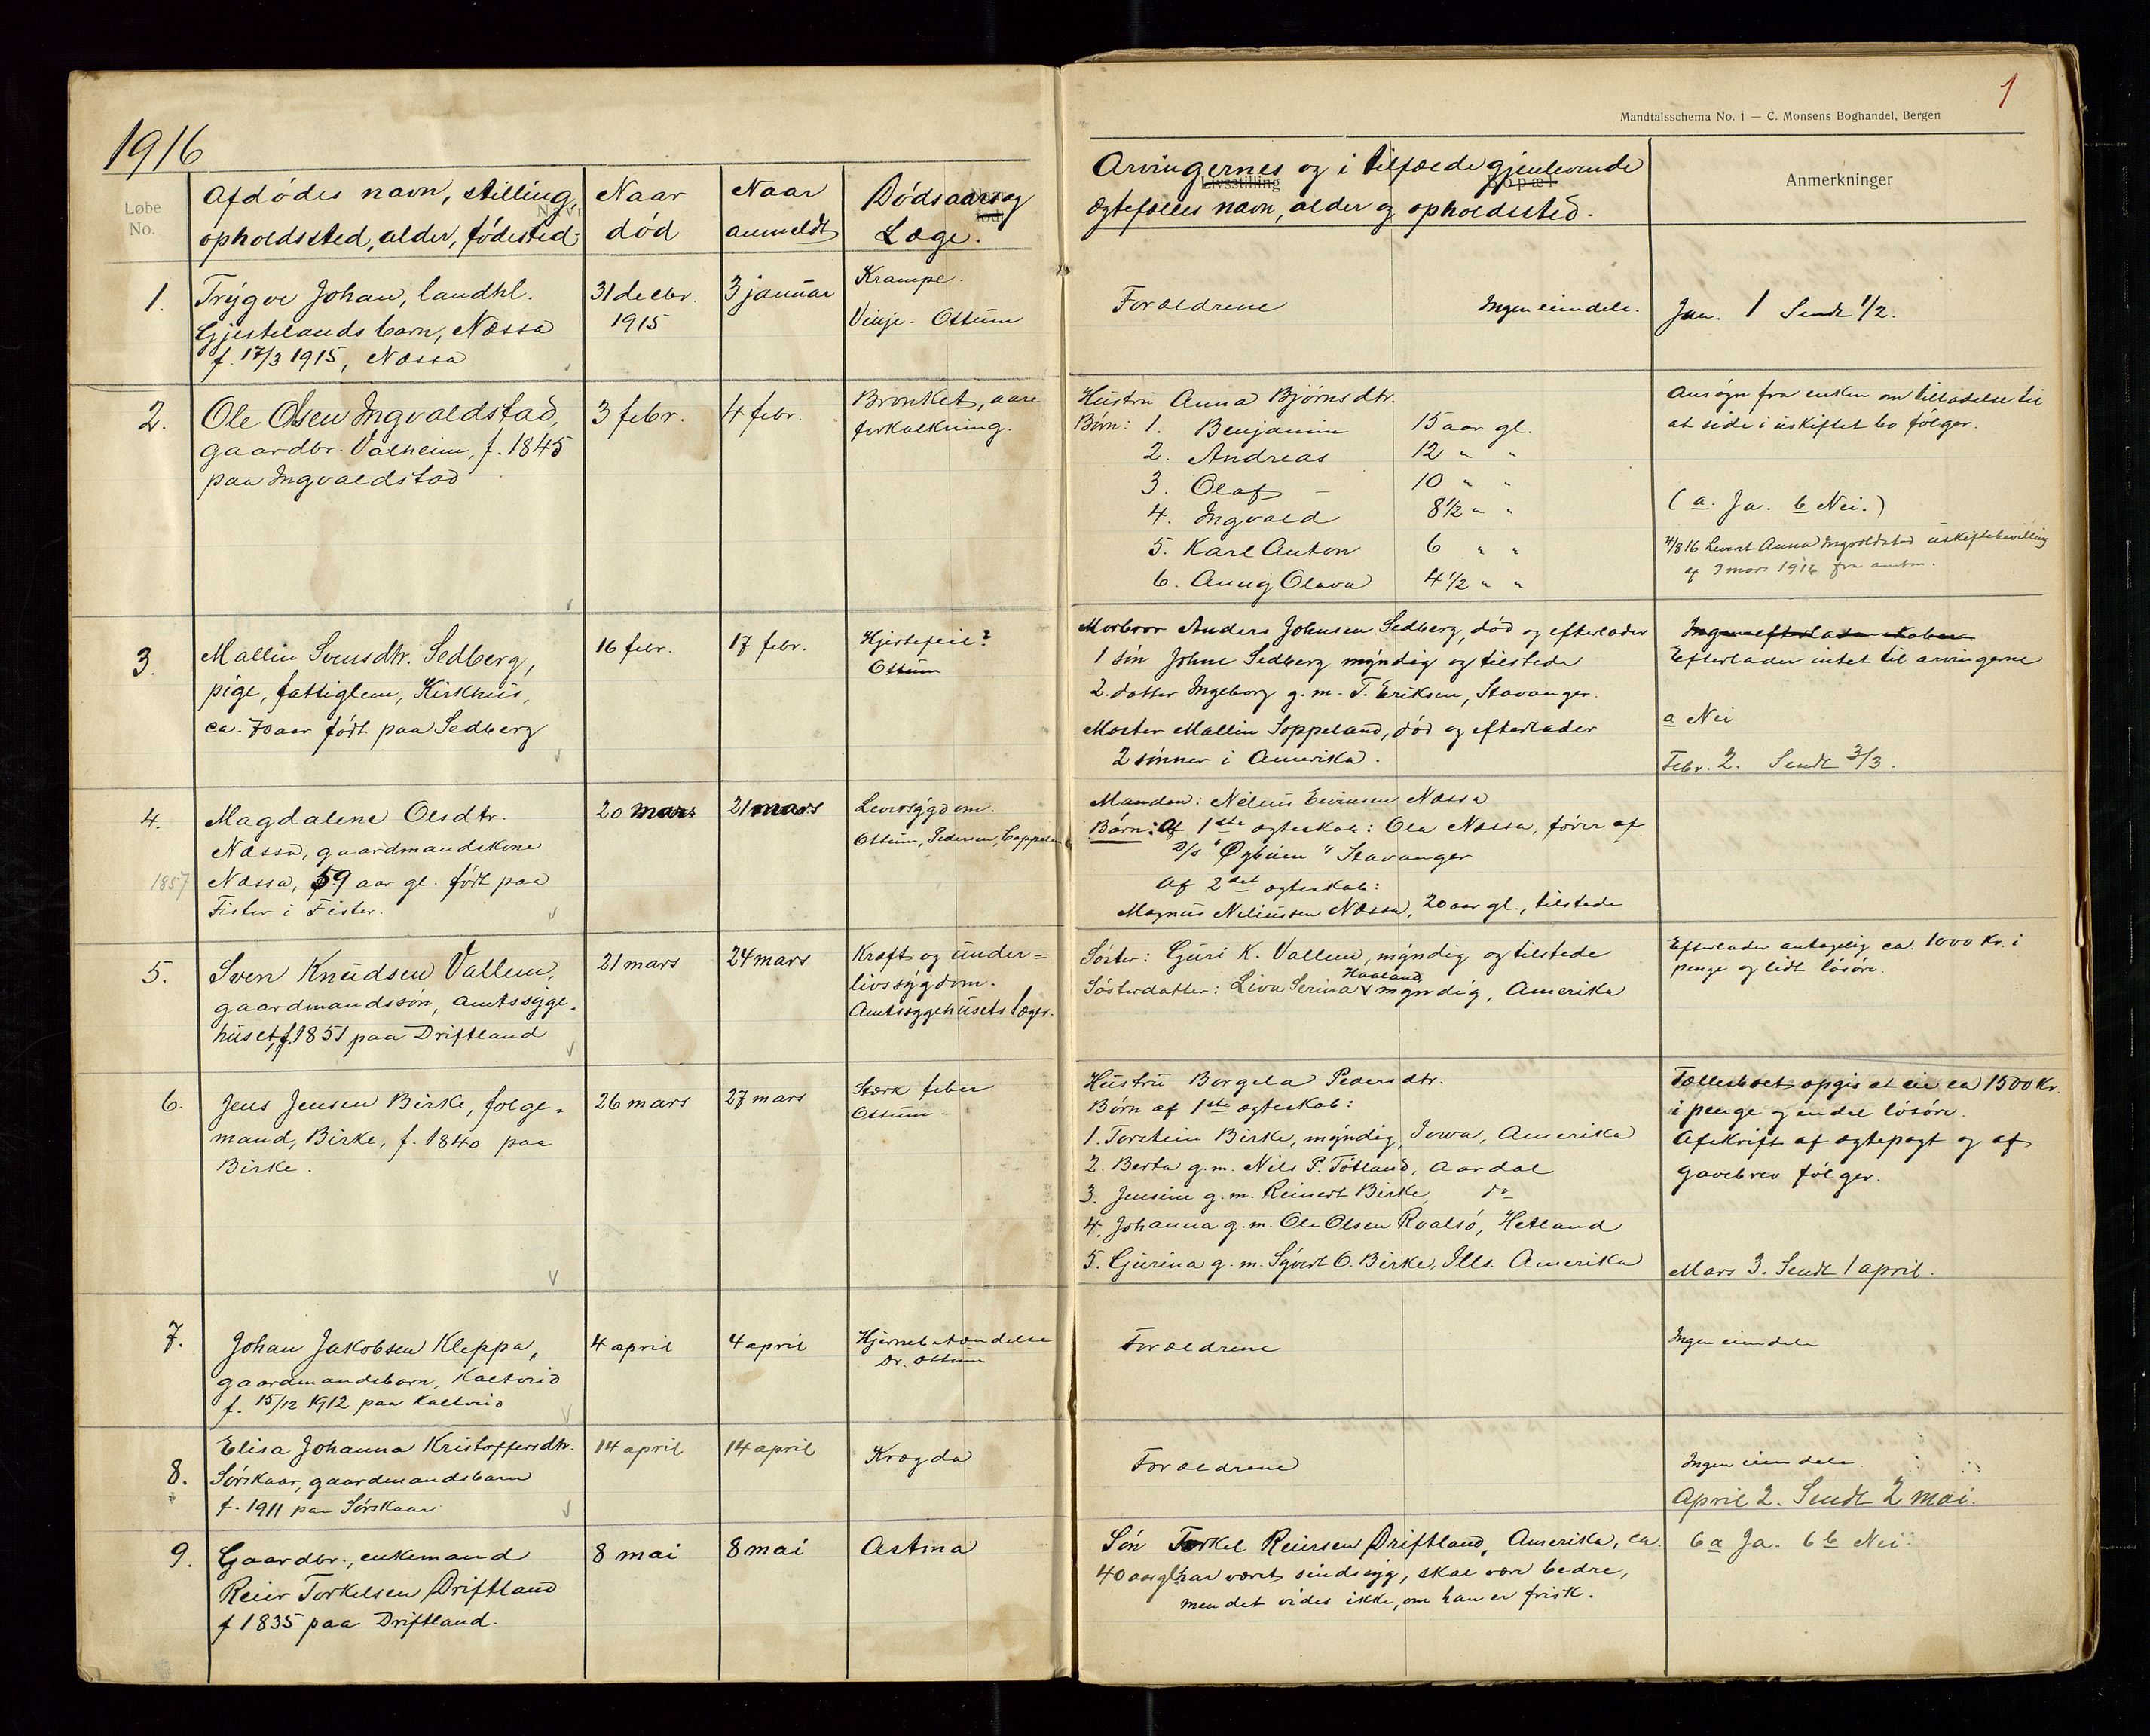 1916
1
Mandtalsschema No. 1 — C. Monsens Boghandel, Bergen
Løbe No.
Afdødes navn, stilling, opholdssted, alder, fødested
Naar død
Naar anmeldt
Dødsaarsag Læge.
Arvingernes og i tilfælde gjenlevende
Livsstilling
Bopæl
ægtefælles navn, alder og opholdssted.
Anmerkninger
1.
Trygve Johan, landhl.
Gjestelands barn, Nessa
f. 17/3 1915, Nessa
31 decbr. 1915
3 januar
Krampe.
Vinje - Ottum
Forældrene
Ingen eiendele.
Jan. 1 Sendt 1/2.
2.
Ole Olsen Ingvaldstad,
gaardbr. Valheim, f. 1845
paa Ingvaldstad
3 febr.
4 febr.
Bronket, aare
forkalkning.
Hustru Anna Bjørnsdtr.
Børn: 1. Benjamin 15 aar gl.
2. Andreas 12 " "
3. Olaf – 10 " "
4. Ingvald 8½ " "
5. Karl Anton 6 " "
6. Annig Olava 4½ " "
Ansøgn fra enken om tilladelse til
at side i uskiftet bo følger.
(a. Ja. b Nei.)
4/8 16 Levert Anna Ingvaldstad uskiftebevilling
af 9 mars 1916 fra amtm.
3.
Mallin Svensdtr. Sedberg,
pige, fattiglem, Kirkhus,
ca. 70 aar født paa Sedberg
16 febr.
17 febr.
Hjertefeil?
Ottum
Morbror Anders Johnsen Sedberg, død og efterlader
1 søn Johne Sedberg myndig og tilstede
2. datter Ingeborg g. m. T. Eriksen, Stavanger.
Moster Mallin Soppeland, død og efterlader
2 sønner i Amerika.
Efterlader intet til arvingerne
a Nei
Febr. 2. Sendt 3/3.
4.
1857
Magdalene Olsdtr.
Nessa, gaardmandskone
Nessa, 59 aar gl. født paa
Fister i Fister.
20 mars
21 mars
Leversygdom.
Ottum, Pedersen, Cappelen
Manden: Nelius Eivinsen Nessa
Børn: Af 1ste ægteskab: Ola Nessa, fører af
D/S "Øybuen" Stavanger
Af 2det ægteskab:
Magnus Neliussen Nessa, 20 aar gl., tilstede
5.
Sven Knudsen Vallem,
gaardmandssøn, Amtssyge-
huset, f. 1851 paa Driftland
21 mars
24 mars
Kræft og under=
livssygdom.
Amtssygehusets læger.
Søster: Guri K. Vallem, myndig og tilstede
Haaland
Søsterdatter: Liva Serina v myndig, Amerika
Efterlader antagelig ca. 1000 Kr. i
penge og lidt løsøre.
6.
Jens Jensen Birke, følge-
mand, Birke, f. 1840 paa
Birke.
26 mars
27 mars
Stærk feber
Ottum
Hustru Borgela Pedersdtr.
Børn af 1ste ægteskab:
1. Torstein Birke, myndig, Iowa, Amerika
2. Berta g. m. Nils P. Tøtland, Aardal
3. Jensine g. m. Reinert Birke, do
4. Johanna g. m. Ole Olsen Roalsø, Hetland
5. Gurina g. m. Syvert O. Birke, Ills. Amerika
Fællesboet opgis at eie ca 1500 Kr.
i penge og endel løsøre.
Afskrift af ægtepagt og af
gavebrev følger.
Mars 3. Sendt 1 april.
7.
Johan Jakobsen Kleppa,
gaardmandsbarn, Kaltveid
f. 15/12 1912 paa Kaltveid
4 april
4 april
Hjernebetændelse
Dr. Ottum
Forældrene
Ingen eiendele
8.
Elisa Johanna Kristoffersdtr.
Sørskaar, gaardmandsbarn
f. 1911 paa Sørskaar
14 april
14 april
Krøgda
Forældrene
Ingen eiendele.
April 2. Sendt 2 mai.
9.
Gaardbr., enkemand
Reier Torkelsen Driftland
f 1835 paa Driftland.
8 mai
8 mai
Astma
Søn Torkel Reiersen Driftland, Amerika, ca.
40 aar gl. har været sindssyg, skal være bedre,
men det vides ikke, om han er frisk.
6a Ja. 6b Nei.